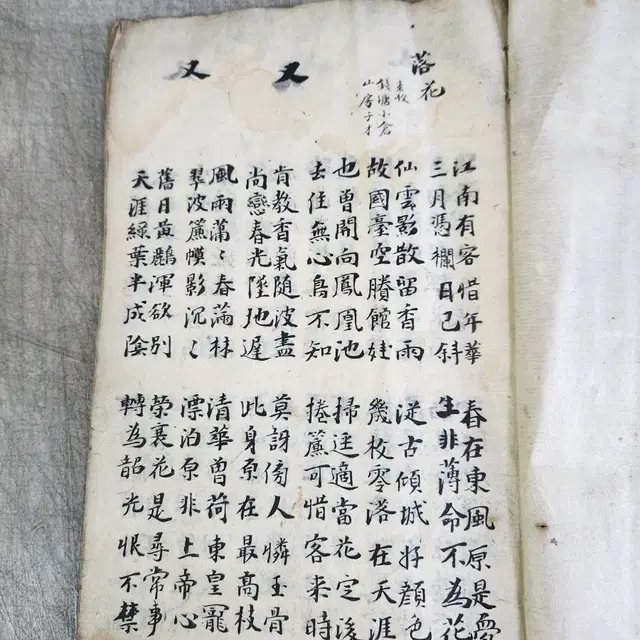 落花
袁枚
錢塘小倉
山房子才
江南有客惜年華
三月憑欄日已斜
春在東風原是夢
生非薄命不為花
仙雲影散留香雨
故國臺空賸館娃
從古傾城好顏色
幾枚零落在天涯
又
也曾開向鳳凰池
去住無心鳥不知
掃逕適當花定後
捲簾可惜客來時
肯教香氣隨波盡
尚戀春光墜地遲
莫訝傍人憐玉骨
此身原在最高枝
又
風雨蕭〻春滿林
翠波簾幙影沉〻
清華曾荷東皇寵
漂泊原非上帝心
舊日黃鸝渾欲別
天涯綠葉半成陰
榮衰花是尋常事
轉為韶光恨不禁